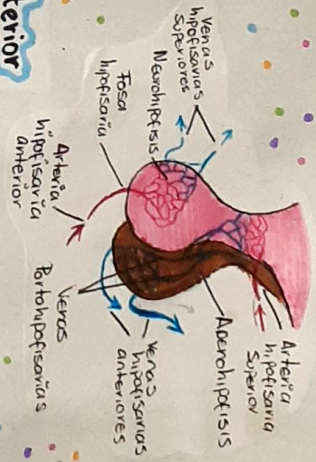 terior
Venas
hipofisarias
superiores
Neurohipofisis
Fosa
hipofisaria
Arteria
hipofisaria
anterior
Venas
Portohipofisarias
Venas
hipofisarias
anteriores
Adenohipofisis
Arteria
hipofisaria
Superior